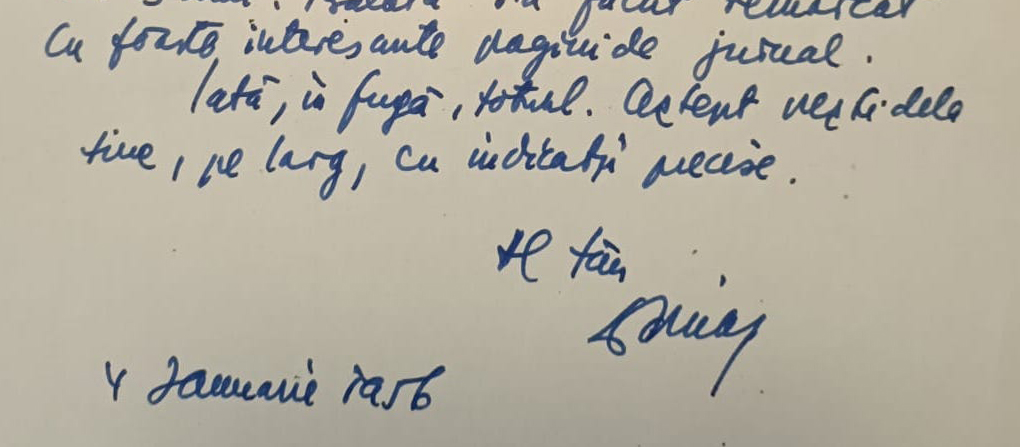 făcut remarcat
cu foarte interesante pagini de jurnal.
Iată, în fugă, totul. Aștept vești dela
tine, pe larg, cu indicații precise.
Al tău
4 Ianuarie 1956